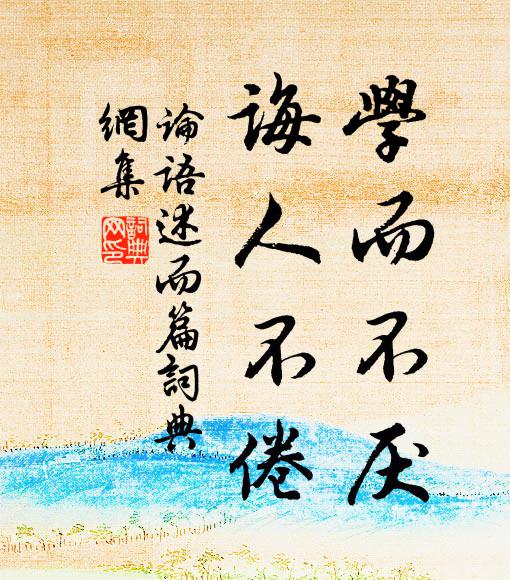 學而不厭
誨人不倦
論語述而篇詞典
網集
詞典
网印